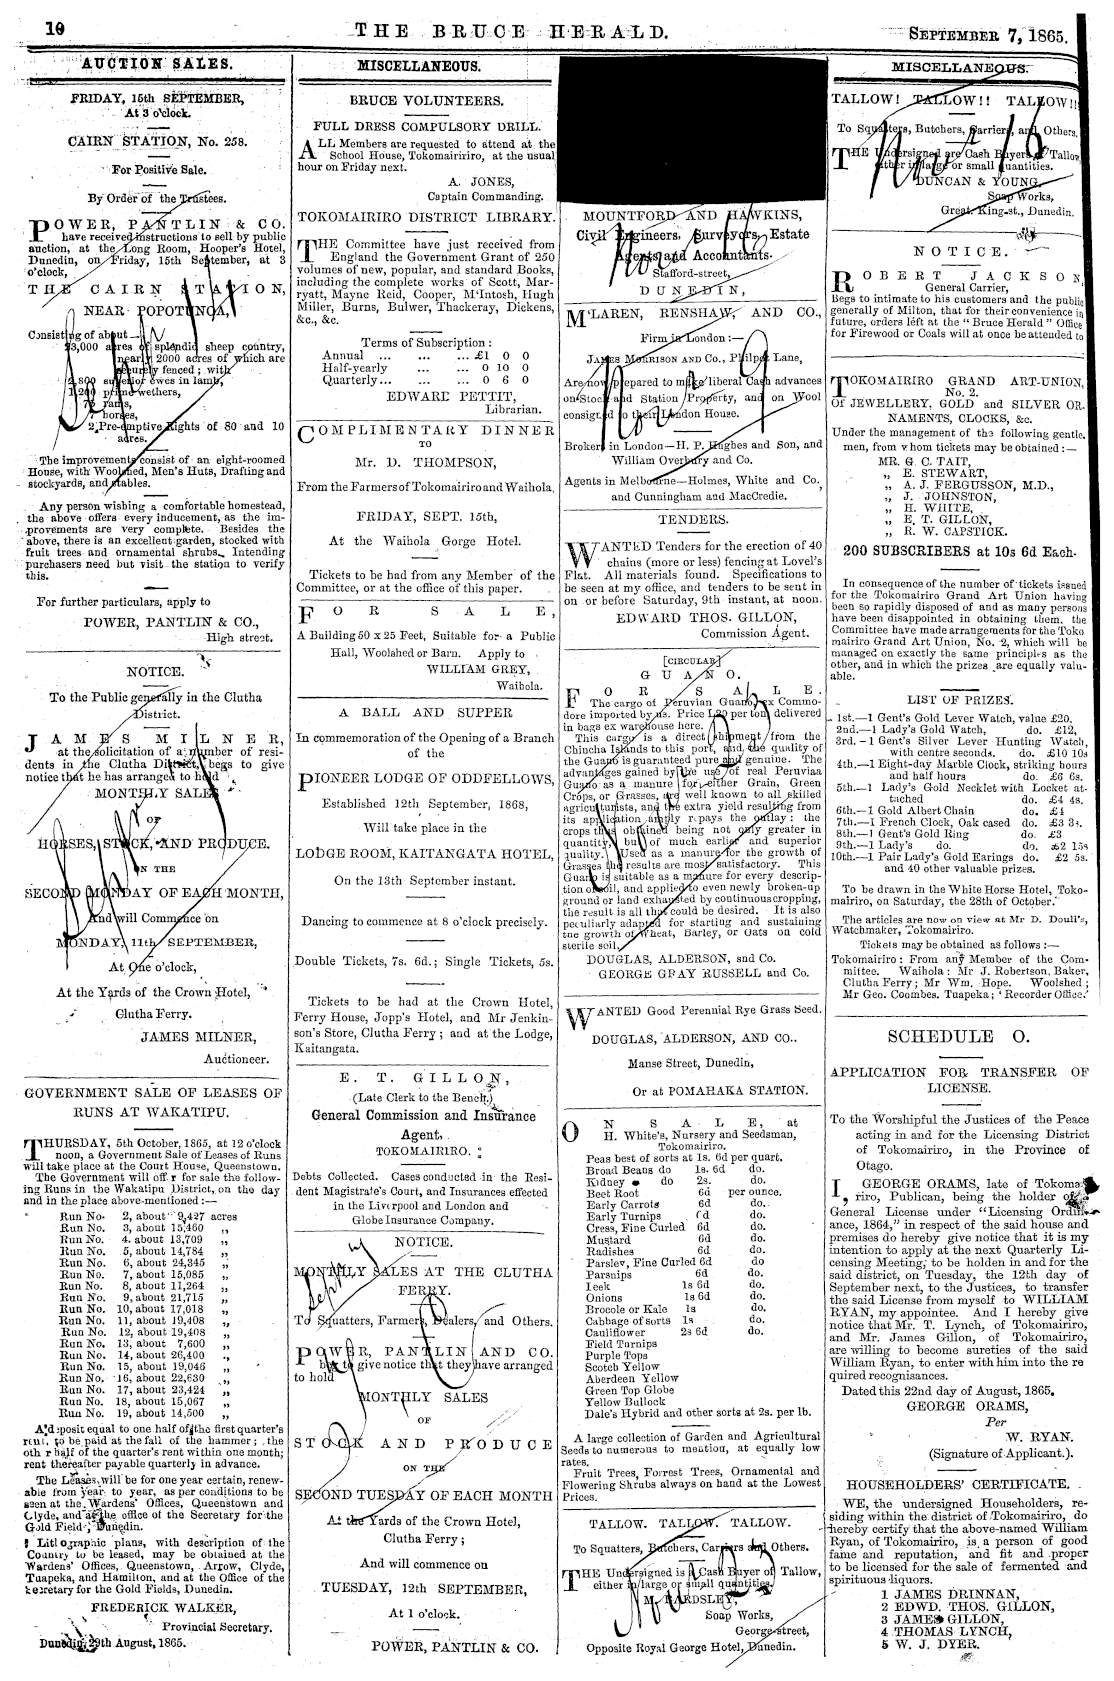 10
THE BRUCE HERALD.
SEPTEMBER 7, 1865.
AUCTION SALES.
FRIDAY, 15th SEPTEMBER,
At 3 o'clock.
CAIRN STATION, No. 258.
For Positive Sale.
By Order of the Trustees.
POWER, PANTLIN & CO.
have received instructions to sell by public
auction, at the Long Room, Hooper's Hotel,
Dunedin, on Friday, 15th September, at 3
o'clock,
THE CAIRN STATION,
NEAR POPOTUNOA,
Consisting of about—
23,000 acres of splendid sheep country,
nearly 2000 acres of which are
securely fenced; with
2,800 superior ewes in lamb,
1,200 prime wethers,
75 rams,
7 horses,
2 Pre-emptive Rights of 80 and 10
acres.
The improvements consist of an eight-roomed
House, with Woolshed, Men's Huts, Drafting and
stockyards, and stables.
Any person wishing a comfortable homestead,
the above offers every inducement, as the im-
provements are very complete. Besides the
above, there is an excellent garden, stocked with
fruit trees and ornamental shrubs. Intending
purchasers need but visit the station to verify
this.
For further particulars, apply to
POWER, PANTLIN & CO.,
High street.
NOTICE.
To the Public generally in the Clutha
District.
JAMES MILNER,
at the solicitation of a number of resi-
dents in the Clutha District, begs to give
notice that he has arranged to hold
MONTHLY SALES
OF
HORSES, STOCK, AND PRODUCE.
ON THE
SECOND MONDAY OF EACH MONTH,
And will Commence on
MONDAY, 11th SEPTEMBER,
At One o'clock,
At the Yards of the Crown Hotel,
Clutha Ferry.
JAMES MILNER,
Auctioneer.
GOVERNMENT SALE OF LEASES OF
RUNS AT WAKATIPU.
THURSDAY, 5th October, 1865, at 12 o'clock
noon, a Government Sale of Leases of Runs
will take place at the Court House, Queenstown.
The Government will off r for sale the follow-
ing Runs in the Wakatipu District, on the day
and in the place above-mentioned:—
Run No. 2, about 9,427 acres
Run No. 3, about 15,460 „
Run No. 4. about 13,709 „
Run No. 5, about 14,784 „
Run No. 6, about 24,345 „
Run No. 7, about 15,085 „
Run No. 8, about 11,264 „
Run No. 9, about 21,715 „
Run No. 10, about 17,018 „
Run No. 11, about 19,408 „
Run No. 12, about 19,408 „
Run No. 13, about 7,600 „
Run No. 14, about 26,400 „
Run No. 15, about 19,046 „
Run No. 16, about 22,630 „
Run No. 17, about 23,424 „
Run No. 18, about 15,067 „
Run No. 19, about 14,500 „
A d :posit equal to one half of the first quarter's
rent, to be paid at the fall of the hammer; the
oth r half of the quarter's rent within one month;
rent thereafter payable quarterly in advance.
The Leases will be for one year certain, renew-
able from year to year, as per conditions to be
seen at the Wardens' Offices, Queenstown and
Clyde, and at the office of the Secretary for the
Gold Field, Dunedin.
Lithographic plans, with description of the
Country to be leased, may be obtained at the
Wardens' Offices, Queenstown, Arrow, Clyde,
Tuapeka, and Hamilton, and at the Office of the
Secretary for the Gold Fields, Dunedin.
FREDERICK WALKER,
Provincial Secretary.
Dunedin, 29th August, 1865.
MISCELLANEOUS.
BRUCE VOLUNTEERS.
FULL DRESS COMPULSORY DRILL.
ALL Members are requested to attend at the
School House, Tokomairiro, at the usual
hour on Friday next.
A. JONES,
Captain Commanding.
TOKOMAIRIRO DISTRICT LIBRARY.
THE Committee have just received from
England the Government Grant of 250
volumes of new, popular, and standard Books,
including the complete works of Scott, Mar-
ryatt, Mayne Reid, Cooper, M'Intosh, Hugh
Miller, Burns, Bulwer, Thackeray, Dickens,
&c., &c.
Terms of Subscription:
Annual ... ... ... £1 0 0
Half-yearly ... ... 0 10 0
Quarterly ... ... ... 0 6 0
EDWARD PETTIT,
Librarian.
COMPLIMENTARY DINNER
TO
Mr. D. THOMPSON,
From the Farmers of Tokomairiro and Waihola,
FRIDAY, SEPT. 15th,
At the Waihola Gorge Hotel.
Tickets to be had from any Member of the
Committee, or at the office of this paper.
FOR SALE,
A Building 50 x 25 Feet, Suitable for a Public
Hall, Woolshed or Barn. Apply to
WILLIAM GREY,
Waihola.
A BALL AND SUPPER
In commemoration of the Opening of a Branch
of the
PIONEER LODGE OF ODDFELLOWS,
Established 12th September, 1868,
Will take place in the
LODGE ROOM, KAITANGATA HOTEL,
On the 13th September instant.
Dancing to commence at 8 o'clock precisely.
Double Tickets, 7s. 6d.; Single Tickets, 5s.
Tickets to be had at the Crown Hotel,
Ferry House, Jopp's Hotel, and Mr Jenkin-
son's Store, Clutha Ferry; and at the Lodge,
Kaitangata.
E. T. GILLON,
(Late Clerk to the Bench.)
General Commission and Insurance
Agent,
TOKOMAIRIRO.
Debts Collected. Cases conducted in the Resi-
dent Magistrate's Court, and Insurances effected
in the Liverpool and London and
Globe Insurance Company.
NOTICE.
MONTHLY SALES AT THE CLUTHA
FERRY.
To Squatters, Farmers, Dealers, and Others.
POWER, PANTLIN AND CO.
beg to give notice that they have arranged
to hold
MONTHLY SALES
OF
STOCK AND PRODUCE
ON THE
SECOND TUESDAY OF EACH MONTH
At the Yards of the Crown Hotel,
Clutha Ferry;
And will commence on
TUESDAY, 12th SEPTEMBER,
At 1 o'clock.
POWER, PANTLIN & CO.
MOUNTFORD AND HAWKINS,
Civil Engineers, Surveyors, Estate
Agents and Accountants.
Stafford-street,
DUNEDIN,
M'LAREN, RENSHAW, AND CO.,
Firm in London:—
JAMES MORRISON AND CO., Philpot Lane,
Are now prepared to make liberal Cash advances
on Stock and Station Property, and on Wool
consigned to their London House.
Brokers in London—H. P. Hughes and Son, and
William Overbury and Co.
Agents in Melbourne—Holmes, White and Co,
and Cunningham and MacCredie.
TENDERS.
WANTED Tenders for the erection of 40
chains (more or less) fencing at Lovel's
Flat. All materials found. Specifications to
be seen at my office, and tenders to be sent in
on or before Saturday, 9th instant, at noon.
EDWARD THOS. GILLON,
Commission Agent.
[CIRCULAR]
GUANO.
FOR SALE.
The cargo of Peruvian Guano, ex Commo-
dore imported by us. Price L20 per ton, delivered
in bags ex warehouse here.
This cargo is a direct shipment from the
Chincha Islands to this port, and the quality of
the Guano is guaranteed pure and genuine. The
advantages gained by the use of real Peruvian
Guano as a manure for either Grain, Green
Crops, or Grasses, are well known to all skilled
agriculturists, and the extra yield resulting from
its application amply r.pays the outlay: the
crops thus obtained being not only greater in
quantity, but of much earlier and superior
quality. Used as a manure for the growth of
Grasses the results are most satisfactory. This
Guano is suitable as a manure for every descrip-
tion of soil, and applied to even newly broken-up
ground or land exhausted by continuous cropping,
the result is all that could be desired. It is also
peculiarly adapted for starting and sustaining
the growth of Wheat, Barley, or Oats on cold
sterile soil.
DOUGLAS, ALDERSON, and Co.
GEORGE GRAY RUSSELL and Co.
WANTED Good Perennial Rye Grass Seed.
DOUGLAS, ALDERSON, AND CO..
Manse Street, Dunedin,
Or at POMAHAKA STATION.
ON SALE, at
H. White's, Nursery and Seedsman,
Tokomairiro.
Peas best of sorts at 1s. 6d per quart.
Broad Beans do 1s. 6d do.
Kidney do 2s. do.
Beet Root 6d per ounce.
Early Carrots 6d do.
Early Turnips 6d do.
Cress, Fine Curled 6d do.
Mustard 6d do.
Radishes 6d do.
Parsley, Fine Curled 6d do.
Parsnips 6d do.
Leek 1s 6d do.
Onions 1s 6d do.
Brocole or Kale 1s do.
Cabbage of sorts 1s do.
Cauliflower 2s 6d do.
Field Turnips
Purple Tops
Scotch Yellow
Aberdeen Yellow
Green Top Globe
Yellow Bullock
Dale's Hybrid and other sorts at 2s. per lb.
A large collection of Garden and Agricultural
Seeds to numerous to mention, at equally low
rates.
Fruit Trees, Forrest Trees, Ornamental and
Flowering Shrubs always on hand at the Lowest
Prices.
TALLOW. TALLOW. TALLOW.
To Squatters, Butchers, Carriers and Others.
THE Undersigned is a Cash Buyer of Tallow,
either in large or small quantities.
M. BARDSLEY,
Soap Works,
George-street,
Opposite Royal George Hotel, Dunedin.
MISCELLANEOUS.
TALLOW! TALLOW!! TALLOW!!!
To Squatters, Butchers, Carriers, and Others.
THE Undersigned are Cash Buyers of Tallow
either in large or small quantities.
DUNCAN & YOUNG,
Soap Works,
Great King-st., Dunedin.
NOTICE.
ROBERT JACKSON,
General Carrier,
Begs to intimate to his customers and the public
generally of Milton, that for their convenience in
future, orders left at the "Bruce Herald" Office
for Firewood or Coals will at once be attended to
TOKOMAIRIRO GRAND ART-UNION,
No. 2.
Of JEWELLERY, GOLD and SILVER OR-
NAMENTS, CLOCKS, &c.
Under the management of the following gentle.
men, from whom tickets may be obtained:—
MR. G. C. TAIT,
„ E. STEWART,
„ A. J. FERGUSSON, M.D.,
„ J. JOHNSTON,
„ H. WHITE,
„ E. T. GILLON,
„ R. W. CAPSTICK.
200 SUBSCRIBERS at 10s 6d Each.
In consequence of the number of tickets issued
for the Tokomairiro Grand Art Union having
been so rapidly disposed of and as many persons
have been disappointed in obtaining them, the
Committee have made arrangements for the Toko
mairiro Grand Art Union, No. 2, which will be
managed on exactly the same principles as the
other, and in which the prizes are equally valu-
able.
LIST OF PRIZES.
1st.—1 Gent's Gold Lever Watch, value £20.
2nd.—1 Lady's Gold Watch, do. £12,
3rd.—1 Gent's Silver Lever Hunting Watch,
with centre seconds. do. £10 10s
4th.—1 Eight-day Marble Clock, striking hours
and half hours do. £6 6s.
5th.—1 Lady's Gold Necklet with Locket at-
tached do. £4 4s.
6th.—1 Gold Albert Chain do. £4
7th.—1 French Clock, Oak cased do. £3 3s.
8th.—1 Gent's Gold Ring do. £3
9th.—1 Lady's do. do. £2 15s
10th.—1 Pair Lady's Gold Earings do. £2 5s.
and 40 other valuable prizes.
To be drawn in the White Horse Hotel, Toko-
mairiro, on Saturday, the 28th of October.
The articles are now on view at Mr D. Doull's,
Watchmaker, Tokomairiro.
Tickets may be obtained as follows:—
Tokomairiro: From any Member of the Com-
mittee. Waihola: Mr J. Robertson, Baker,
Clutha Ferry; Mr Wm. Hope. Woolshed;
Mr Geo. Coombes. Tuapeka; 'Recorder Office.'
SCHEDULE O.
APPLICATION FOR TRANSFER OF
LICENSE.
To the Worshipful the Justices of the Peace
acting in and for the Licensing District
of Tokomairiro, in the Province of
Otago.
I, GEORGE ORAMS, late of Tokomai-
riro, Publican, being the holder of a
General License under "Licensing Ordin-
ance, 1864," in respect of the said house and
premises do hereby give notice that it is my
intention to apply at the next Quarterly Li-
censing Meeting, to be holden in and for the
said district, on Tuesday, the 12th day of
September next, to the Justices, to transfer
the said License from myself to WILLIAM
RYAN, my appointee. And I hereby give
notice that Mr. T. Lynch, of Tokomairiro,
and Mr. James Gillon, of Tokomairiro,
are willing to become sureties of the said
William Ryan, to enter with him into the re
quired recognisances.
Dated this 22nd day of August, 1865.
GEORGE ORAMS,
Per
W. RYAN.
(Signature of Applicant.).
HOUSEHOLDERS' CERTIFICATE.
WE, the undersigned Householders, re-
siding within the district of Tokomairiro, do
hereby certify that the above-named William
Ryan, of Tokomairiro, is a person of good
fame and reputation, and fit and proper
to be licensed for the sale of fermented and
spirituous liquors.
1 JAMES DRINNAN,
2 EDWD. THOS. GILLON,
3 JAMES GILLON,
4 THOMAS LYNCH,
5 W. J. DYER.